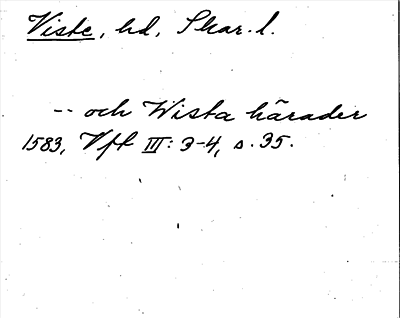 Viste, hd, Skar. l.
-- och Wista härader
1583, Vft III: 3-4, s. 35.